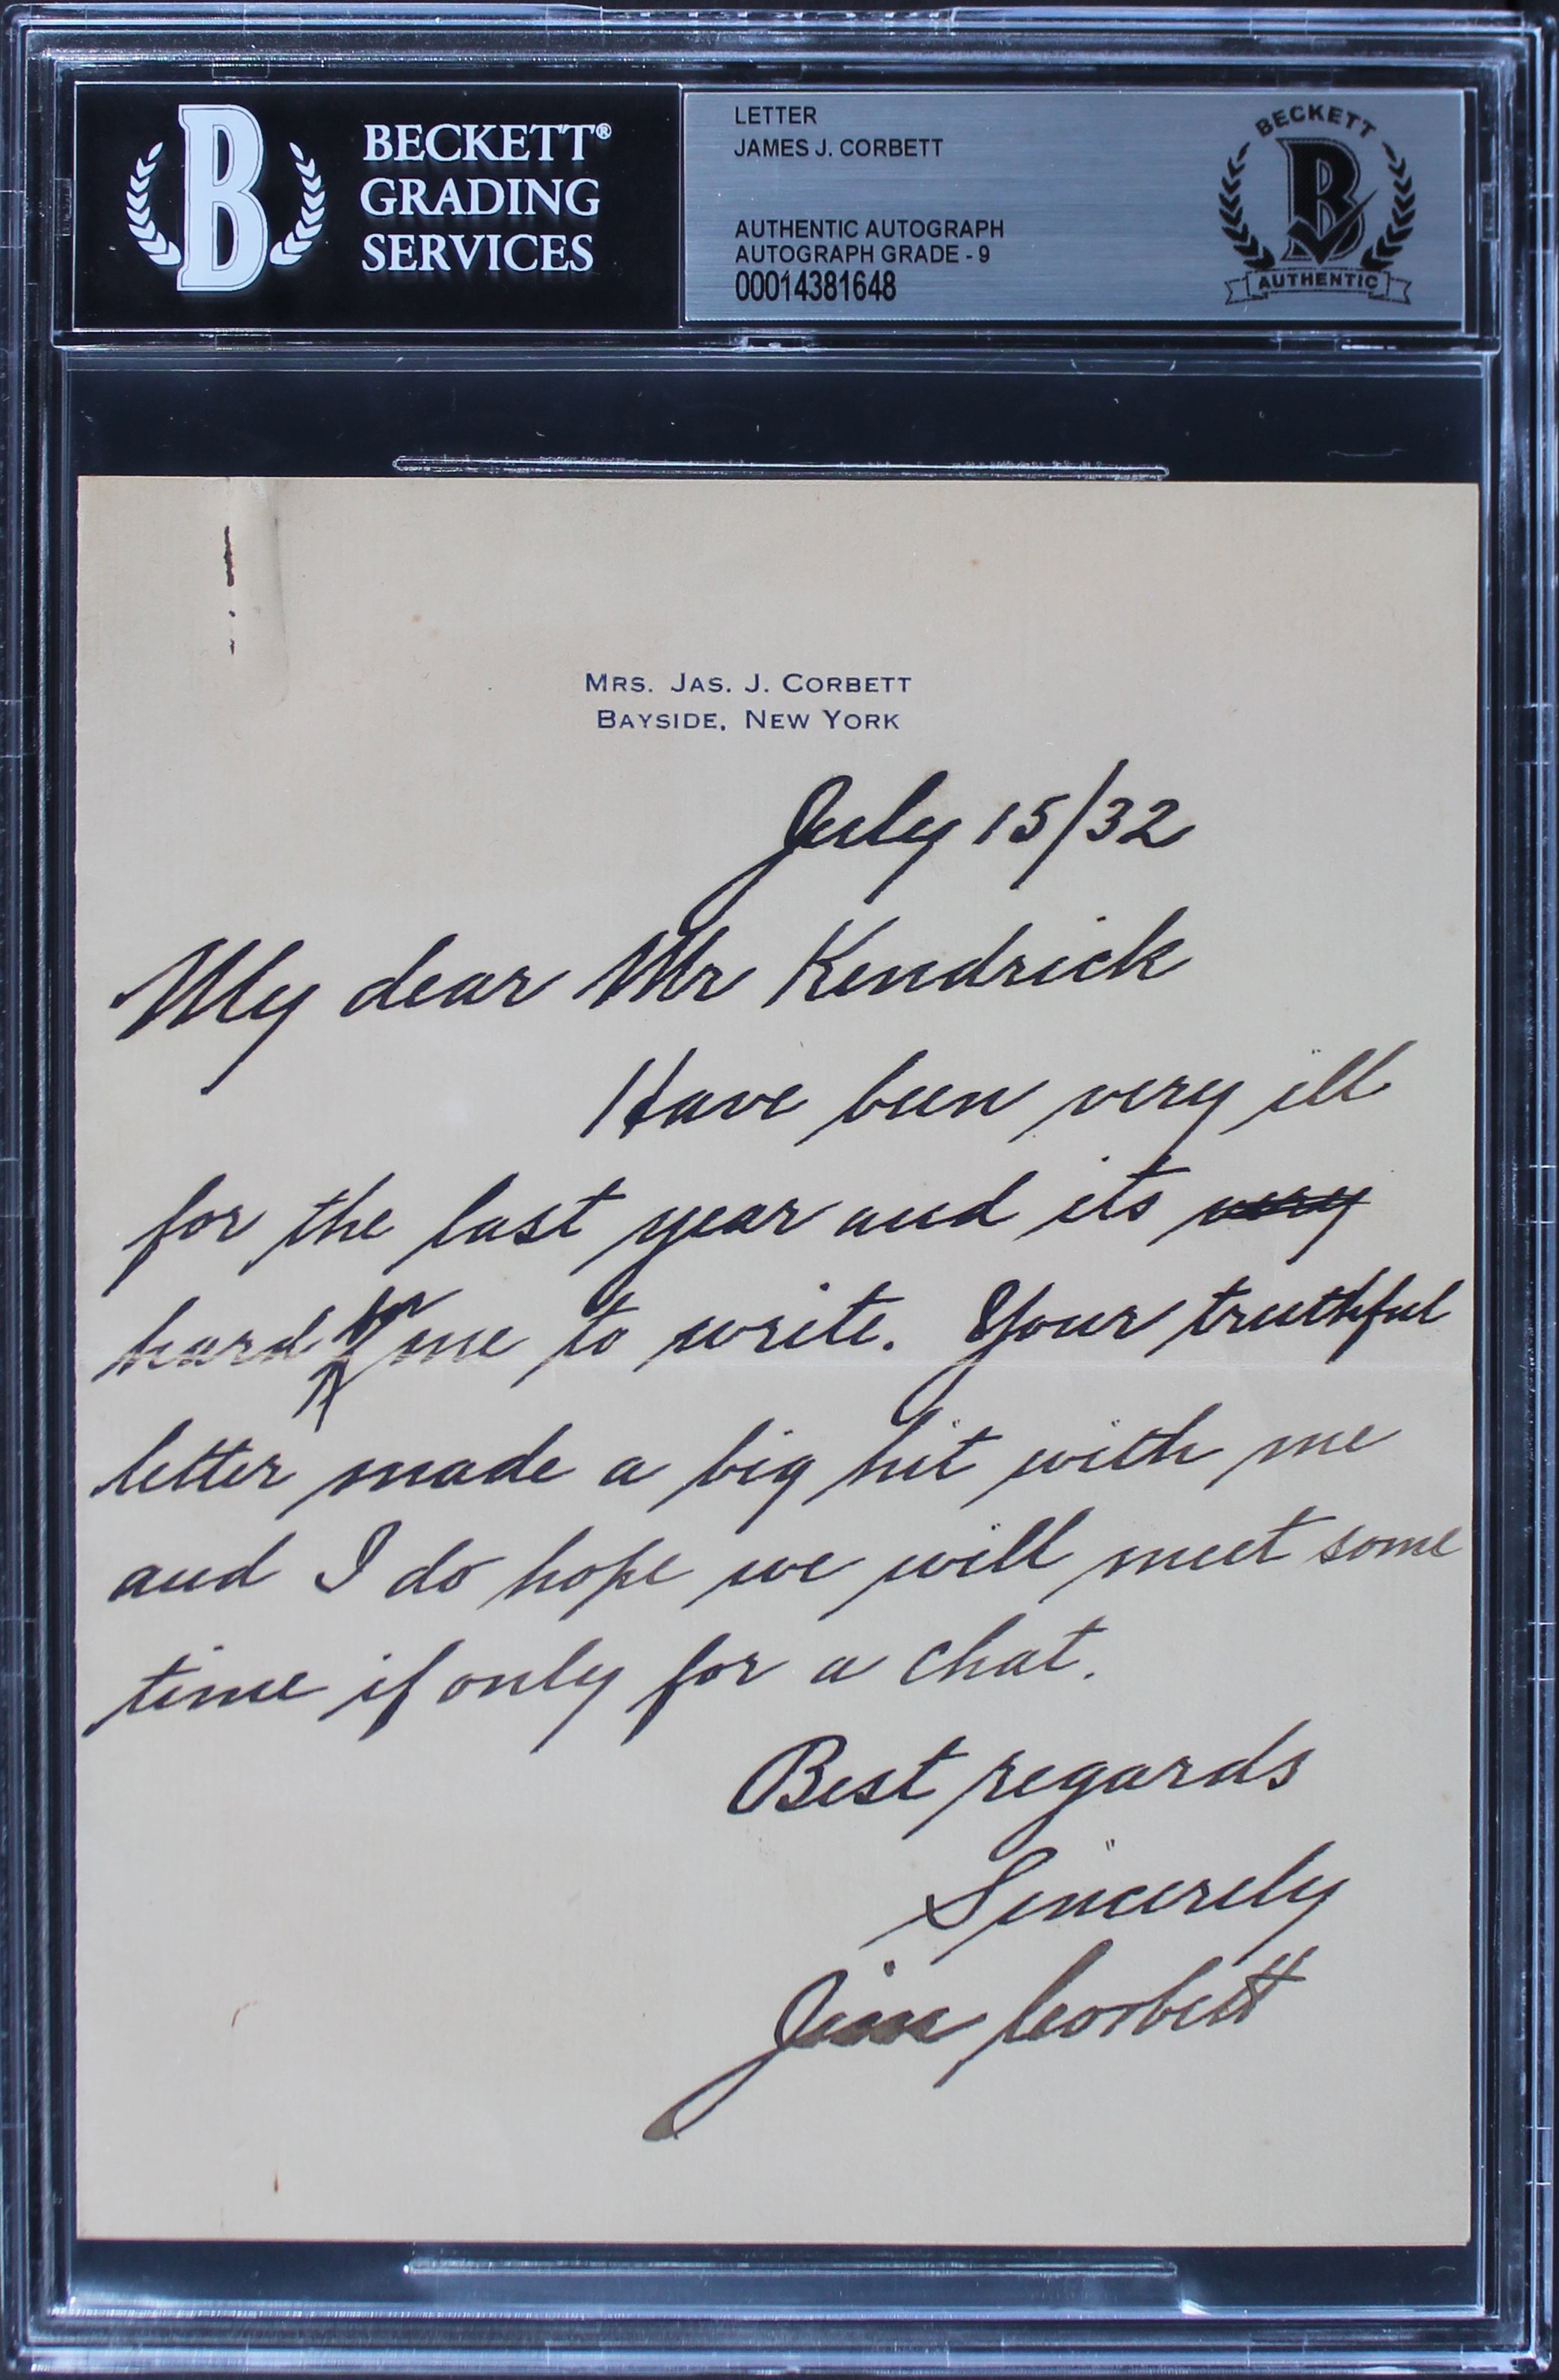 BECKETT®
GRADING
SERVICES
LETTER
JAMES J. CORBETT
AUTHENTIC AUTOGRAPH
AUTOGRAPH GRADE - 9
00014381648
BECKETT
AUTHENTIC
MRS. JAS. J. CORBETT
BAYSIDE, NEW YORK
July 15/32
My dear Mr Kendrick
Have been very ill
for the last year and its very
hard for me to write. Your truthful
letter made a big hit with me
and I do hope we will meet some
time if only for a chat.
Best regards
Sincerely
Jim Corbett